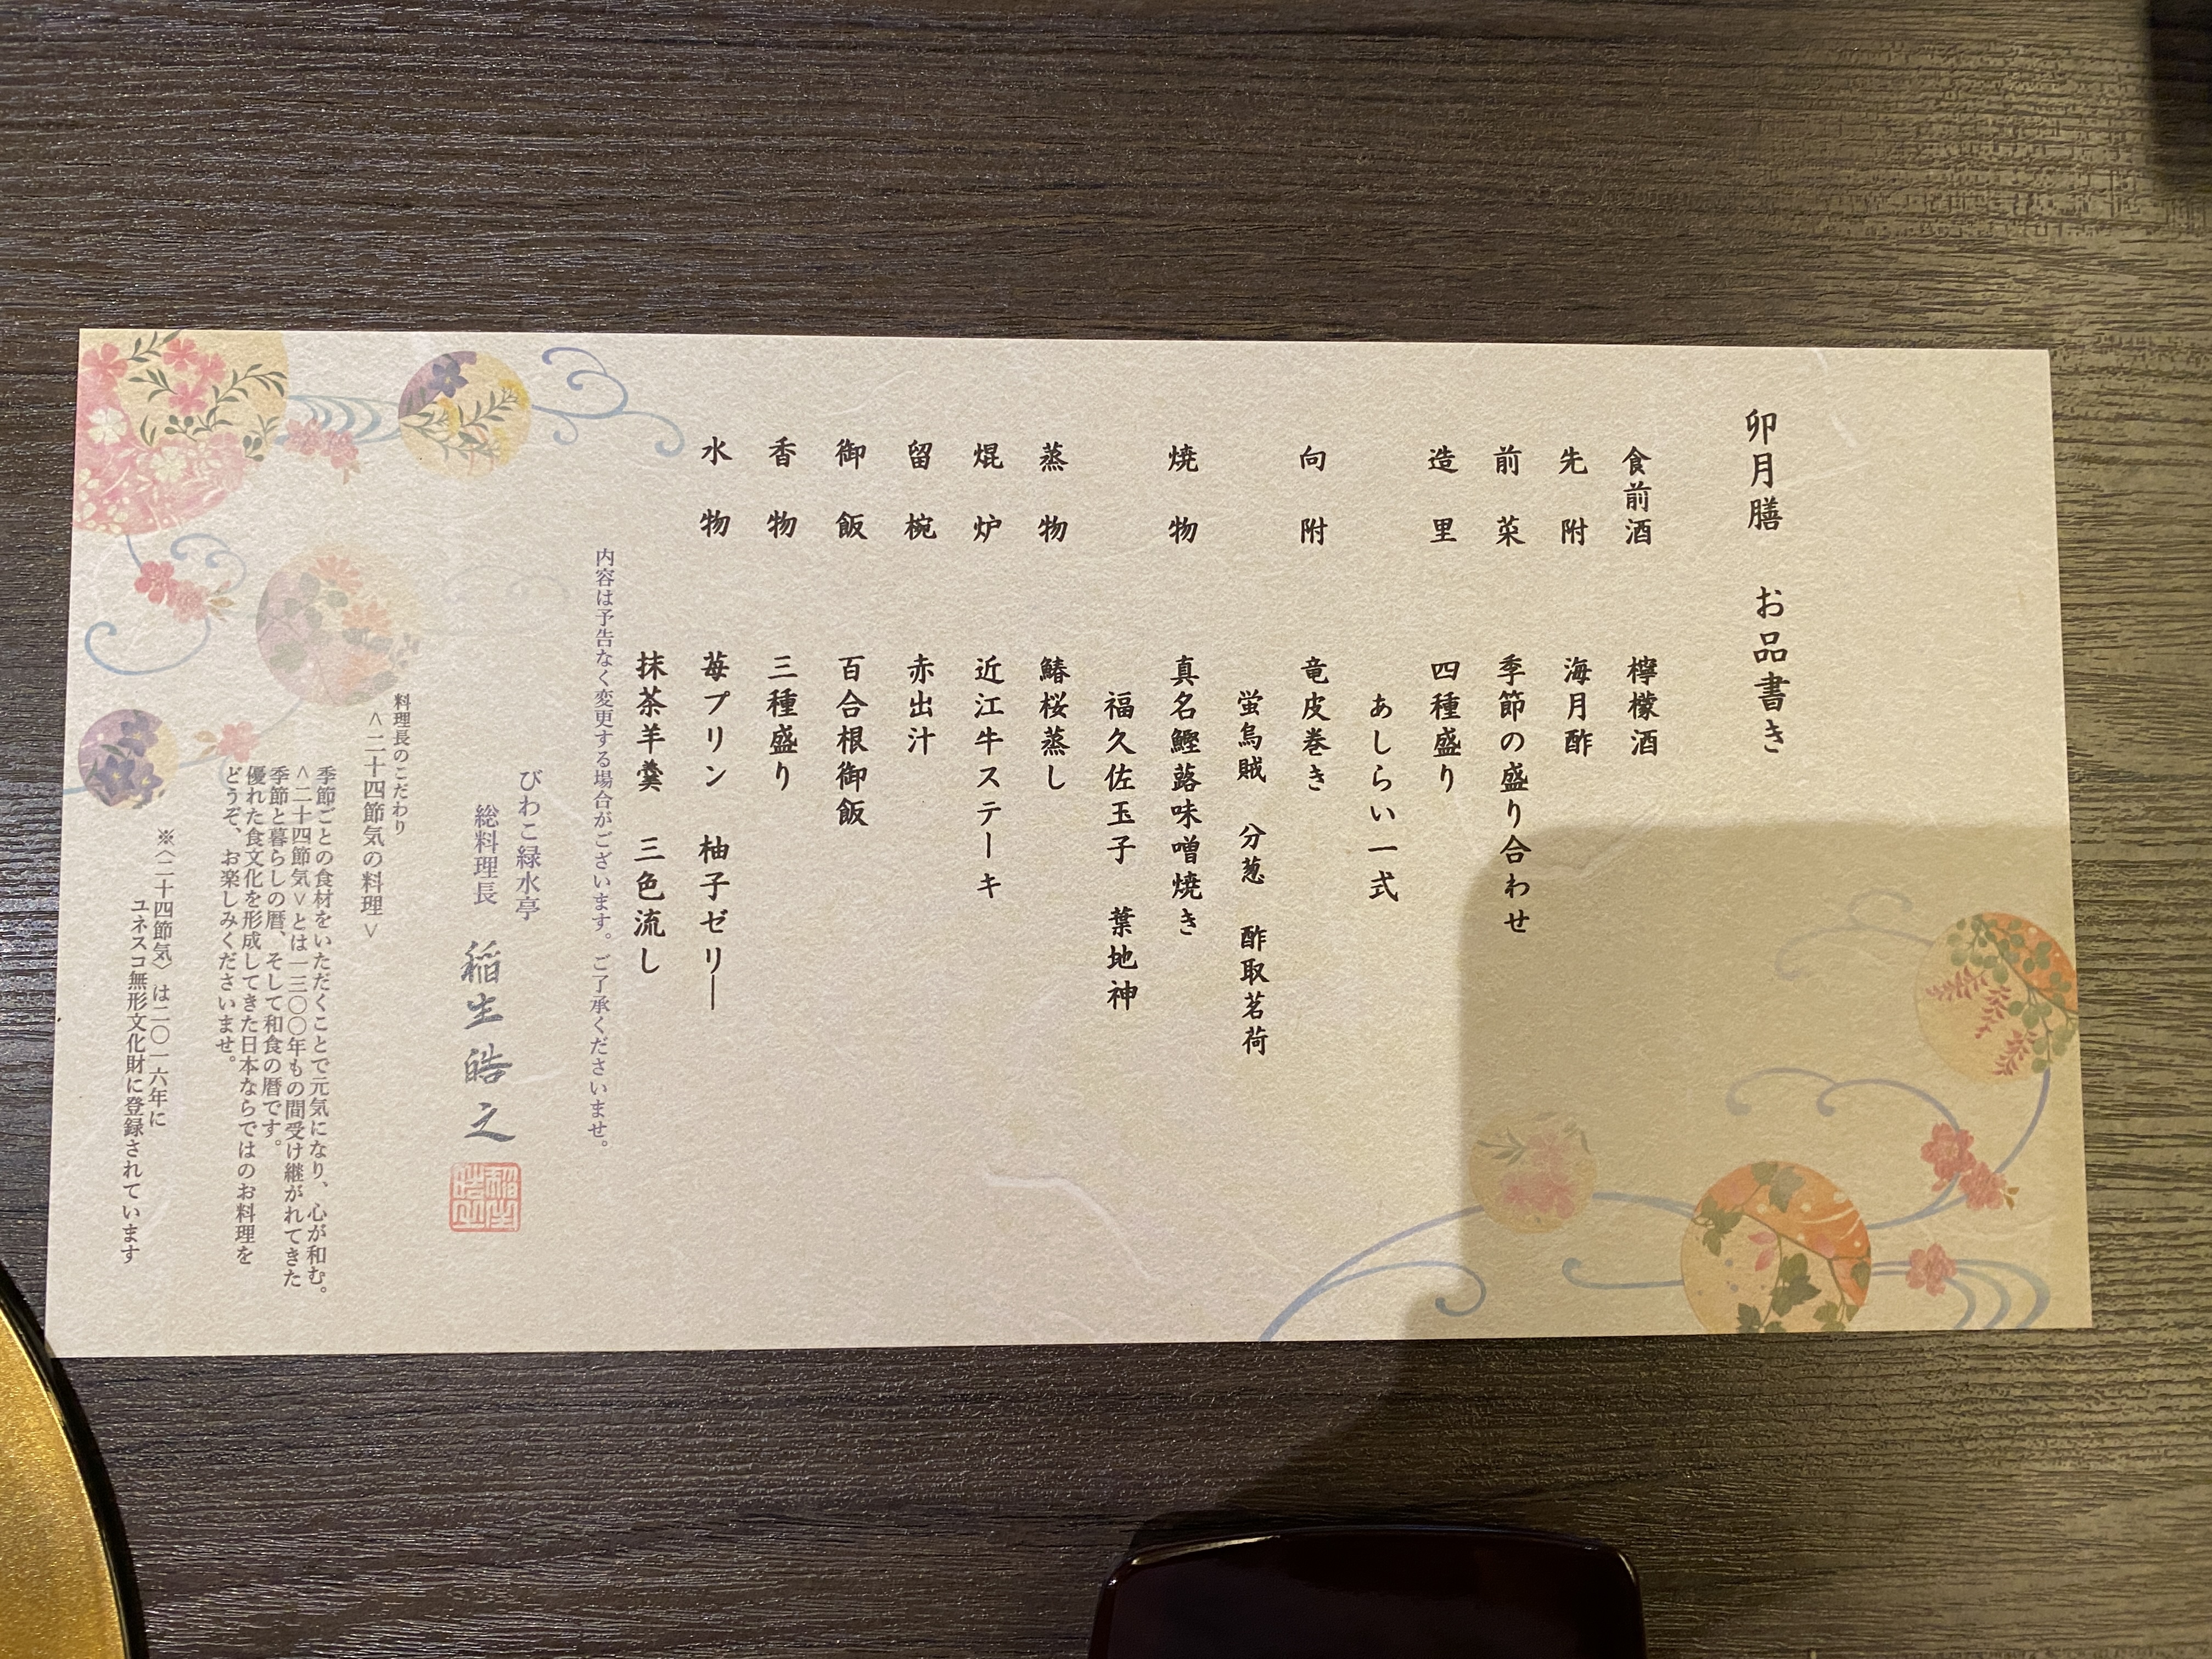 卯月膳　お品書き
食前酒　檸檬酒
先附　海月酢
前菜　季節の盛り合わせ
造里　四種盛り
あしらい一式
向附　竜皮巻き
蛍烏賊　分葱　酢取茗荷
焼物　真名鰹蕗味噌焼き
福久佐玉子　葉地神
蒸物　鰆桜蒸し
焜炉　近江牛ステーキ
留椀　赤出汁
御飯　百合根御飯
香物　三種盛り
水物　苺プリン　柚子ゼリー
抹茶羊羹　三色流し
内容は予告なく変更する場合がございます。ご了承くださいませ。
びわこ緑水亭
総料理長　稲生皓之
料理長のこだわり
＜二十四節気の料理＞
季節ごとの食材をいただくことで元気になり、心が和む。
＜二十四節気＞とは一三〇〇年もの間受け継がれてきた
季節と暮らしの暦、そして和食の暦です。
優れた食文化を形成してきた日本ならではのお料理を
どうぞ、お楽しみくださいませ。
※〈二十四節気〉は二〇一六年に
ユネスコ無形文化財に登録されています